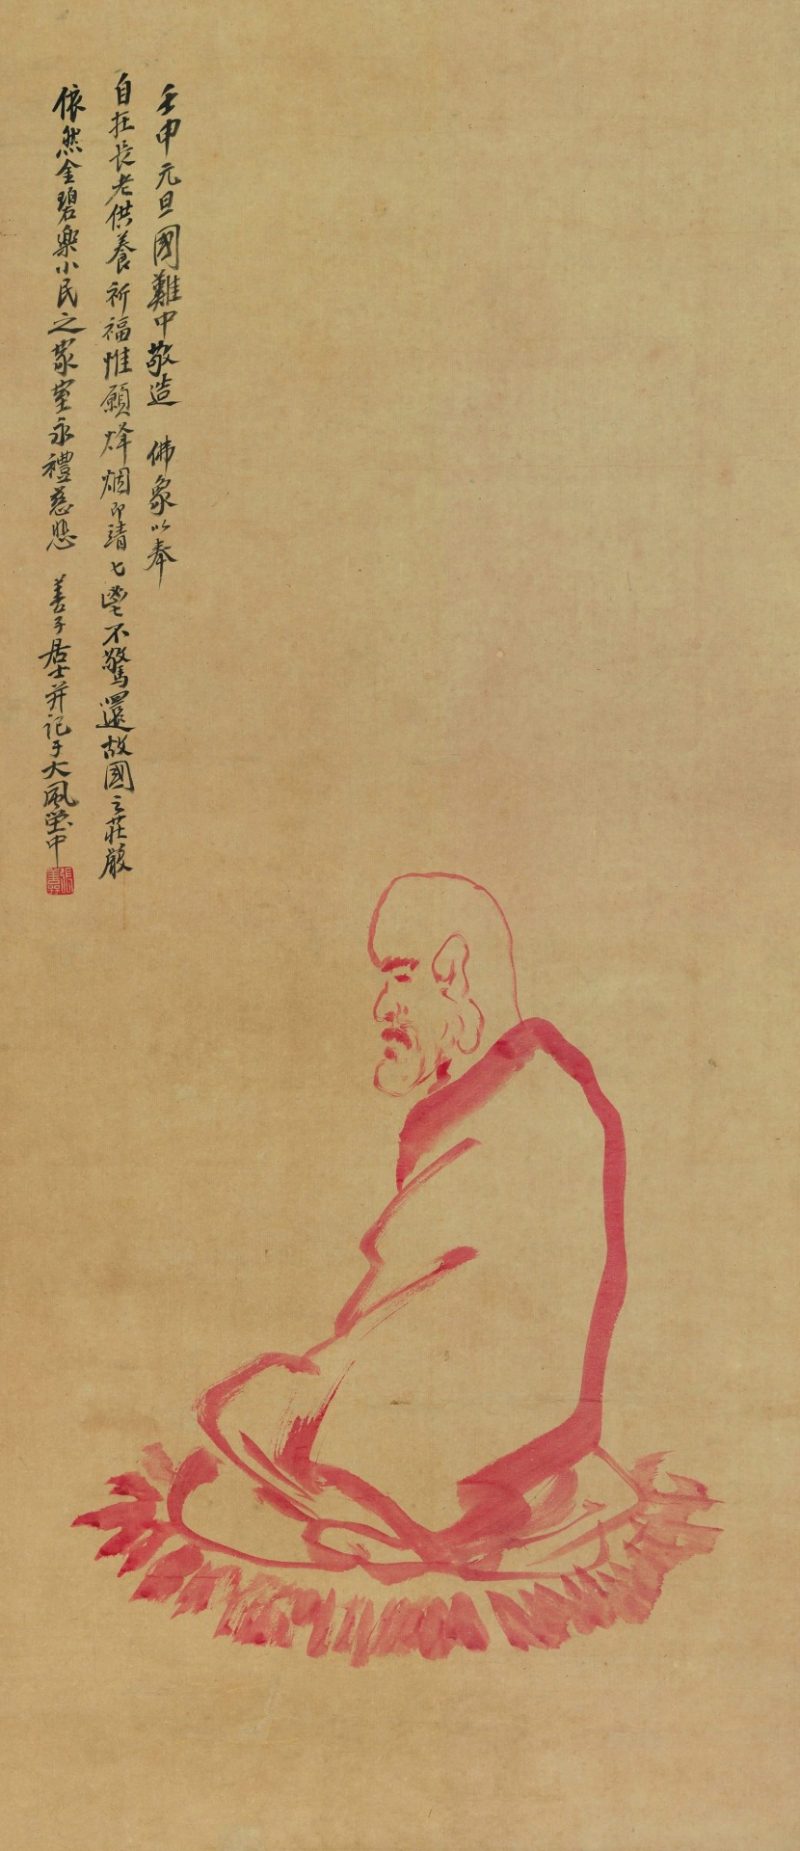 壬申元旦國難中敬造 佛象以奉
自在長老供養祈福惟願烽烟即靖七鬯不驚還故國之莊嚴
依然金碧樂小民之家室永禮慈悲 善子居士并記于大風堂中
張善孖